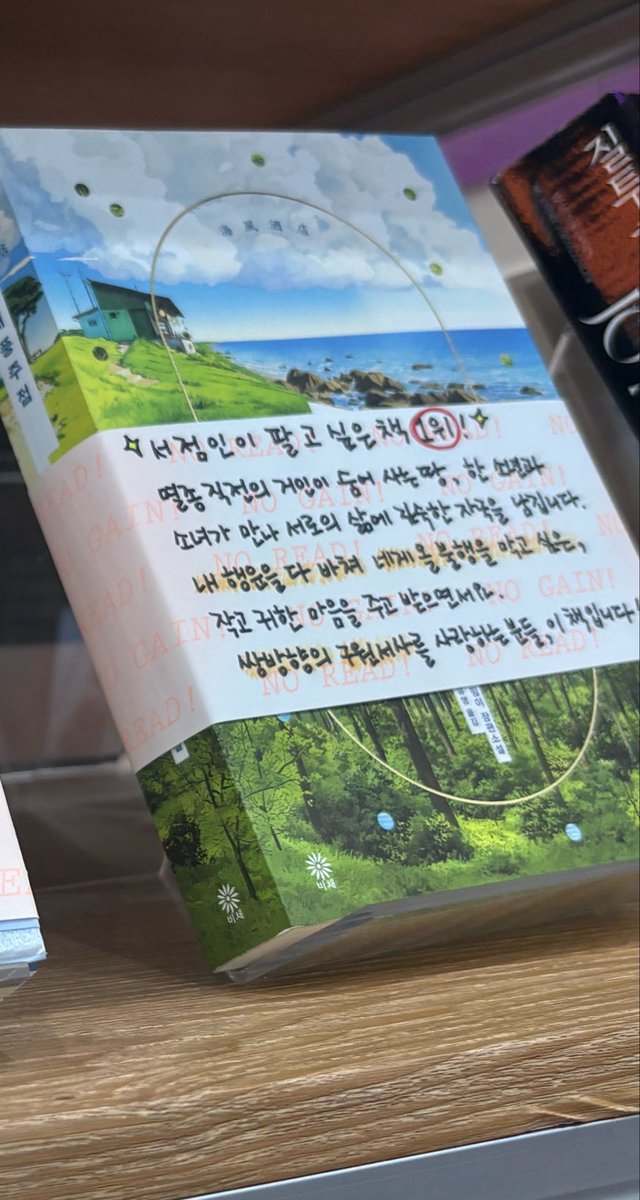 海風酒店
✧서점인이 팔고 싶은 책 1위!✧
멸종 직전의 거인이 숨어 사는 땅, 한 소년과
소녀가 만나 서로의 삶에 깊숙한 자국을 남깁니다.
내 행운을 다 바쳐 네게 올 불행을 막고 싶은,
작고 귀한 마음을 주고받으면서요.
쌍방향의 구원서사를 사랑하는 분들, 이 책입니다!
NO READ! NO GAIN!
장편소설
옮김
비채
비채
질투
JO